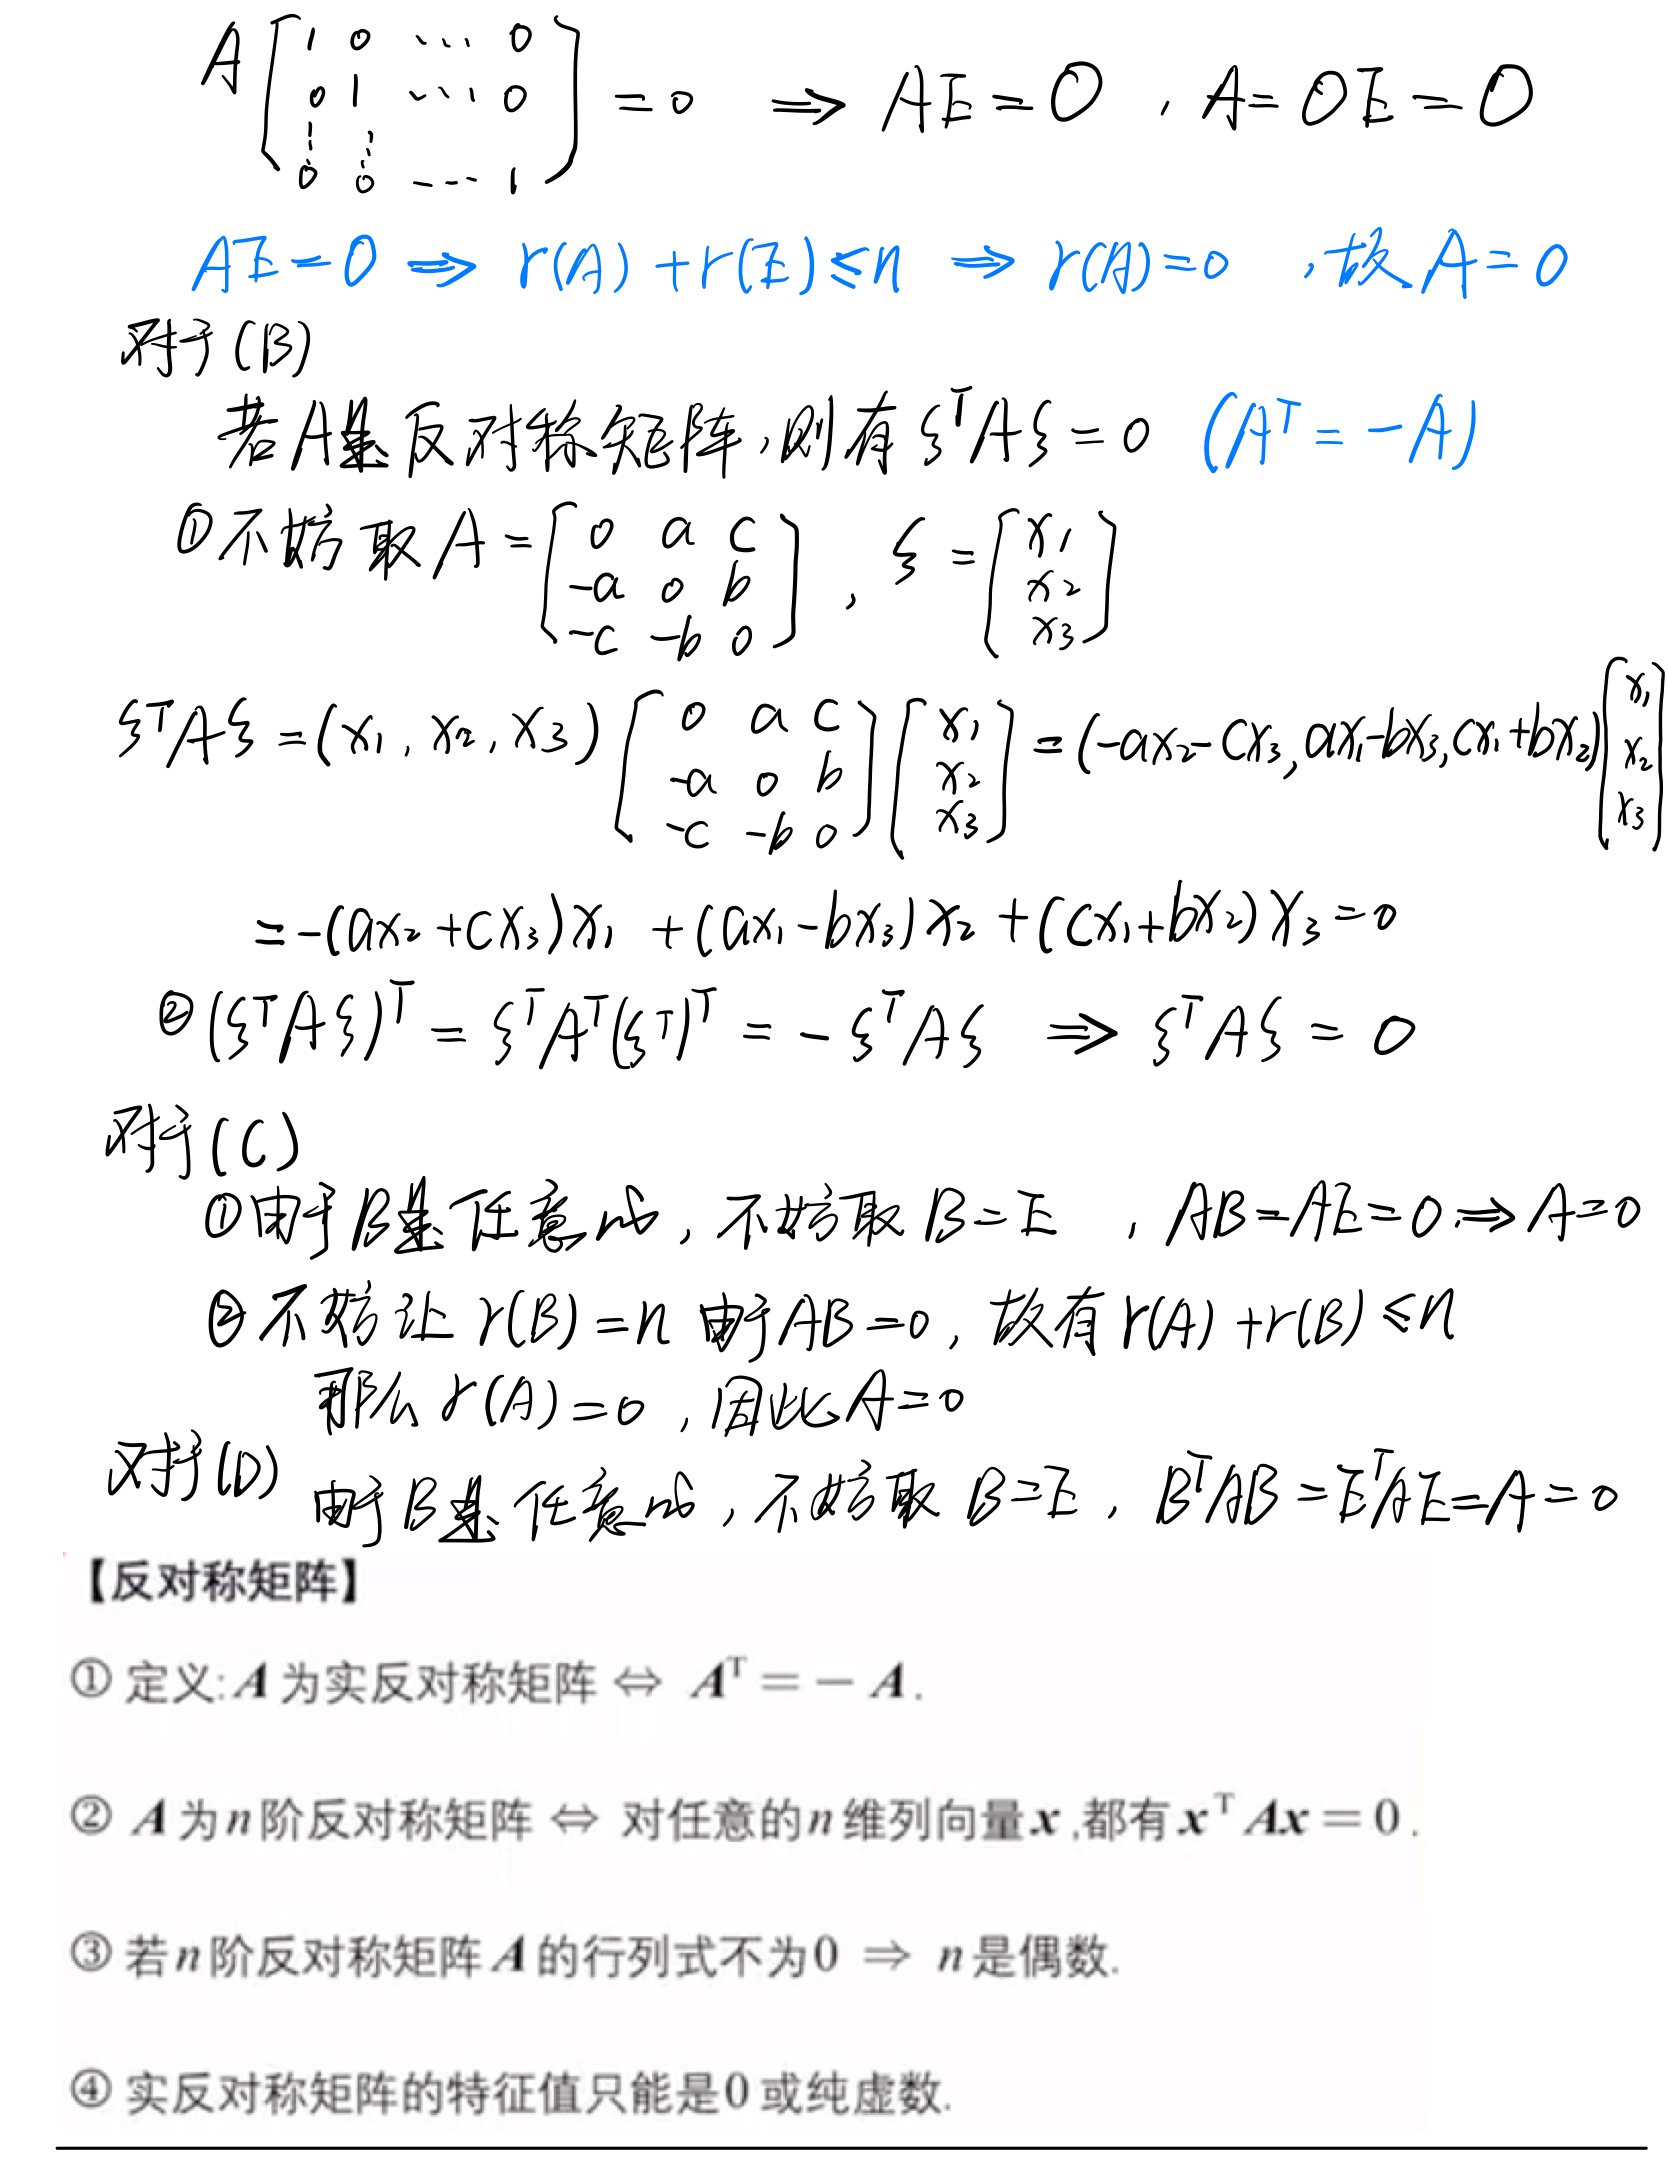 A[1 0 ... 0
0 1 ... 0
⋮ ⋮
0 0 ... 1] = 0 ⇒ AE = O , A = OE = O
AE = O ⇒ r(A) + r(E) ≤ n ⇒ r(A) = 0 ,故 A = 0
对于(B)
若A是反对称矩阵,则有 ξᵀAξ = 0 (Aᵀ = -A)
①不妨取 A = [0 a c
-a 0 b
-c -b 0] , ξ = [x₁
x₂
x₃]
ξᵀAξ = (x₁, x₂, x₃) [0 a c
-a 0 b
-c -b 0] [x₁
x₂
x₃] = (-ax₂-cx₃, ax₁-bx₃, cx₁+bx₂) [x₁
x₂
x₃]
= -(ax₂+cx₃)x₁ + (ax₁-bx₃)x₂ + (cx₁+bx₂)x₃ = 0
②(ξᵀAξ)ᵀ = ξᵀAᵀ(ξᵀ)ᵀ = -ξᵀAξ ⇒ ξᵀAξ = 0
对于(C)
①由于B是任意的,不妨取 B = E , AB = AE = 0 ⇒ A = 0
②不妨让 r(B) = n 由于AB = 0, 故有 r(A) + r(B) ≤ n
那么 r(A) = 0 ,因此 A = 0
对于(D)
由于B是任意的,不妨取 B = E, BᵀAB = EᵀAE = A = 0
【反对称矩阵】
① 定义:A 为实反对称矩阵 ⇔ Aᵀ = - A.
② A 为 n 阶反对称矩阵 ⇔ 对任意的 n 维列向量 x ,都有 xᵀAx = 0 .
③ 若 n 阶反对称矩阵 A 的行列式不为0 ⇒ n 是偶数.
④ 实反对称矩阵的特征值只能是0 或纯虚数.